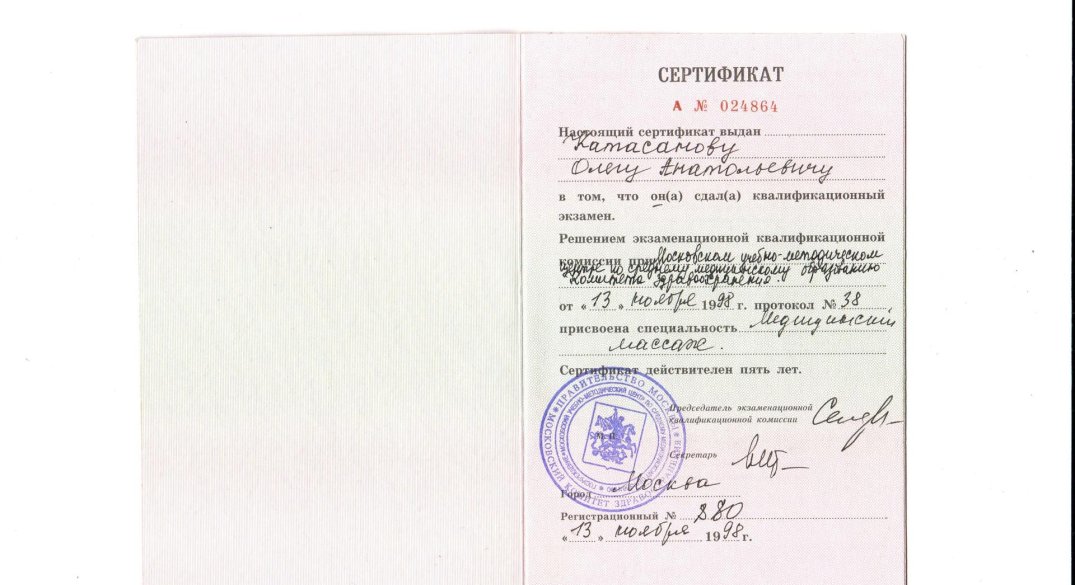 СЕРТИФИКАТ
А № 024864
Настоящий сертификат выдан
Катасанову
Олегу Анатольевичу
в том, что он(а) сдал(а) квалификационный
экзамен.
Решением экзаменационной квалификационной
комиссии при Московском учебно-методическом
центре по среднему медицинскому образованию
Комитета здравоохранения.
от « 13 » ноября 1998 г. протокол № 38
присвоена специальность Медицинский
массаж.
Сертификат действителен пять лет.
ПРАВИТЕЛЬСТВО МОСКВЫ
МОСКОВСКИЙ КОМИТЕТ ЗДРАВООХРАНЕНИЯ
Председатель экзаменационной
квалификационной комиссии
М.П.
Секретарь
Город Москва
Регистрационный № 880
« 13 » ноября 1998 г.